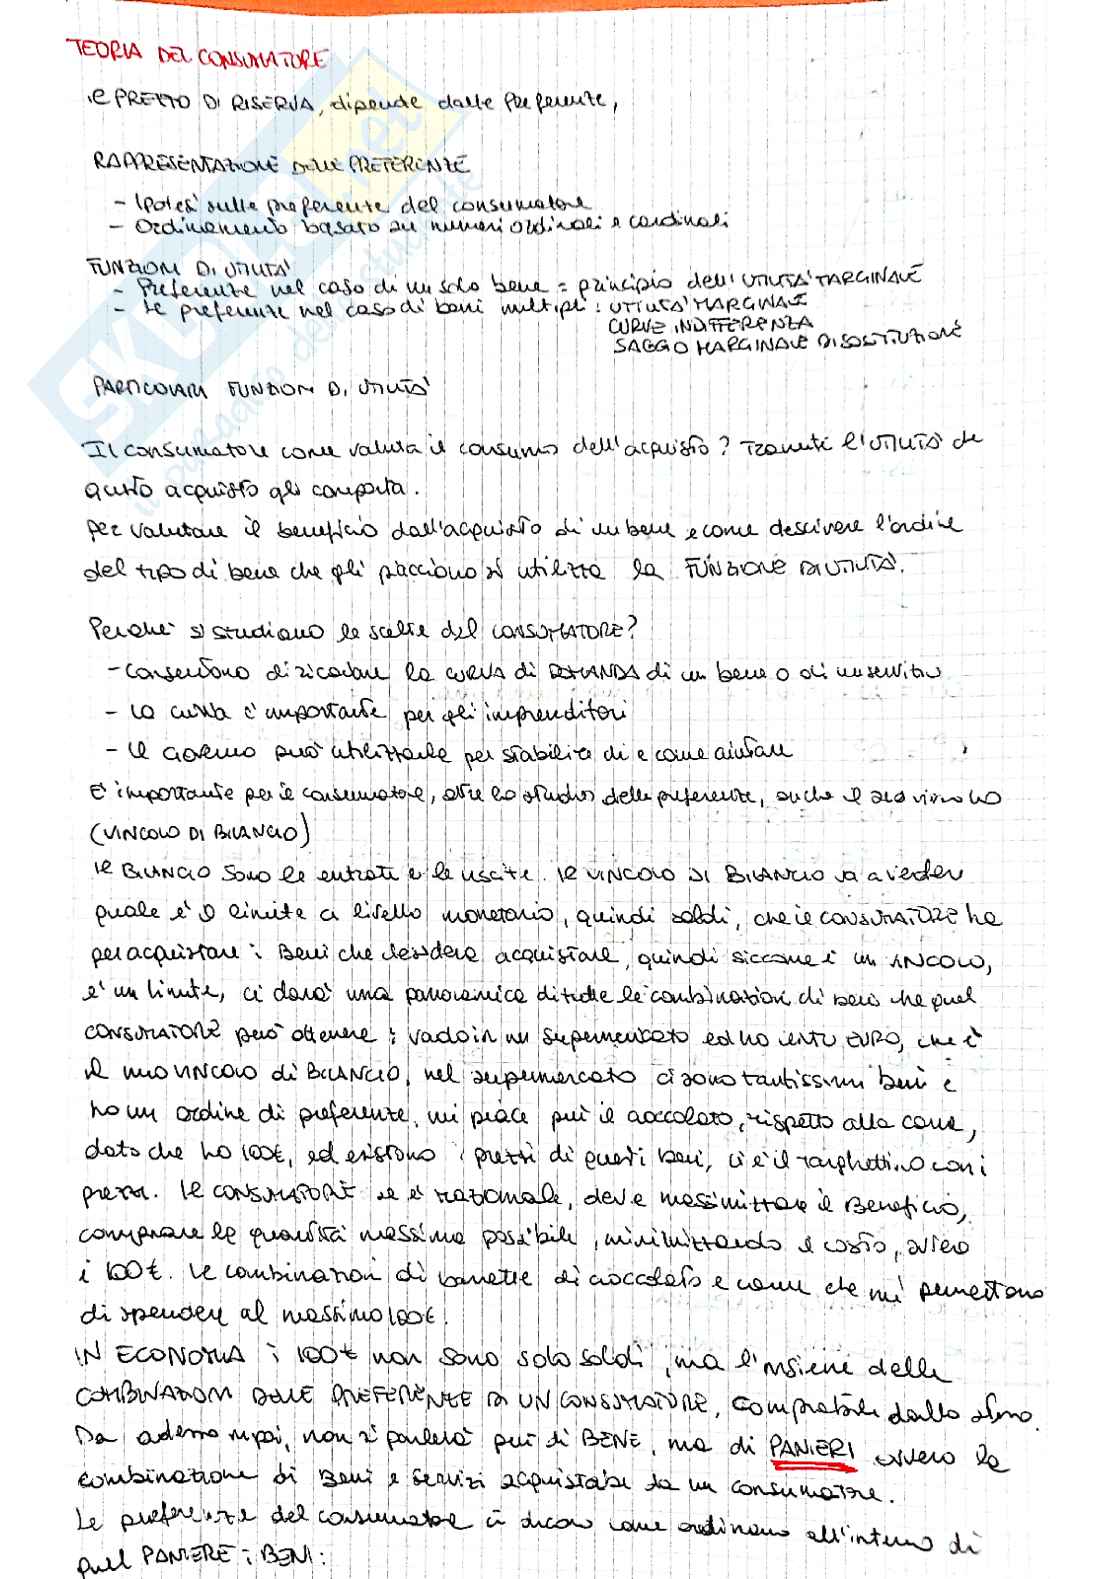 TEORIA DEL CONSUMATORE
IL PREZZO DI RISERVA, dipende dalle preferenze,
RAPPRESENTAZIONE DELLE PREFERENZE
- Ipotesi sulle preferenze del consumatore
- Ordinamento basato su numeri ordinali e cardinali
FUNZIONI DI UTILITÀ
- Preferenze nel caso di un solo bene = principio dell'UTILITÀ MARGINALE
- Le preferenze nel caso di beni multipli: UTILITÀ MARGINALE
CURVE INDIFFERENZA
SAGGIO MARGINALE DI SOSTITUZIONE
PARTICOLARI FUNZIONI DI UTILITÀ
Il consumatore come valuta il consumo dell'acquisto? Tramite l'UTILITÀ che
questo acquisto gli comporta.
Per valutare il beneficio dall'acquisto di un bene e come descrivere l'ordine
del tipo di bene che gli piacciono si utilizza la FUNZIONE DI UTILITÀ.
Perché si studiano le scelte del CONSUMATORE?
- Consentono di ricavare la CURVA di DOMANDA di un bene o di un servizio
- La curva è importante per gli imprenditori
- Il Governo può utilizzarle per stabilire di e come aiutare
È importante per il consumatore, oltre lo studio delle preferenze, anche il suo vincolo
(VINCOLO DI BILANCIO)
Il BILANCIO sono le entrate e le uscite. Il VINCOLO DI BILANCIO va a vedere
quale è il limite a livello monetario, quindi soldi, che il CONSUMATORE ha
per acquistare i Beni che desidera acquistare, quindi siccome è un VINCOLO,
è un limite, ci darà una panoramica di tutte le combinazioni di beni che quel
CONSUMATORE può ottenere: vado in un supermercato ed ho cento EURO, che è
il mio VINCOLO di BILANCIO, nel supermercato ci sono tantissimi beni e
ho un ordine di preferenze, mi piace più il cioccolato, rispetto alla carne,
dato che ho 100€, ed esistono i prezzi di questi beni, ci è il targhettino con i
prezzi. Il CONSUMATORE se è razionale, deve massimizzare il Beneficio,
comprare le quantità massime possibile, minimizzando il costo, ovvero
i 100€. Le combinazioni di barrette di cioccolato e carne che mi permettono
di spendere al massimo 100€.
IN ECONOMIA i 100€ non sono solo soldi, ma l'insieme delle
COMBINAZIONI DELLE PREFERENZE DI UN CONSUMATORE, comprabile dallo stesso.
Da adesso in poi, non si parlerà più di BENE, ma di PANIERI ovvero la
combinazione di Beni e Servizi acquistabile da un consumatore.
Le preferenze del consumatore ci dicono come ordinano all'interno di
quel PANIERE i BENI: